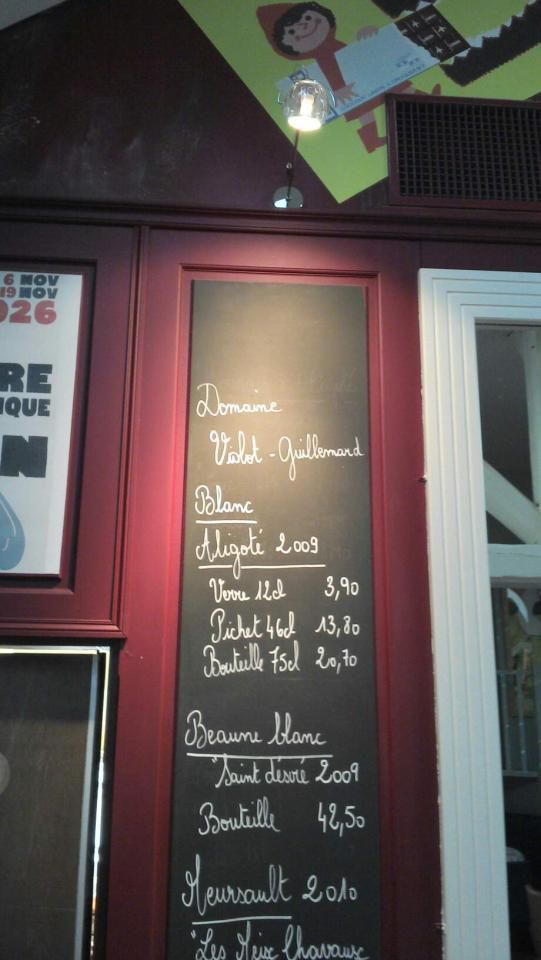 6 NOV
19 NOV
026
RE
IQUE
N
Domaine
Violot - Guillemard
Blanc
Aligoté 2009
Verre 12cl 3,90
Pichet 46cl 13,80
Bouteille 75cl 20,70
Beaune blanc
"Saint désiré 2009
Bouteille 42,50
Meursault 2010
"Les Meix Chavaux